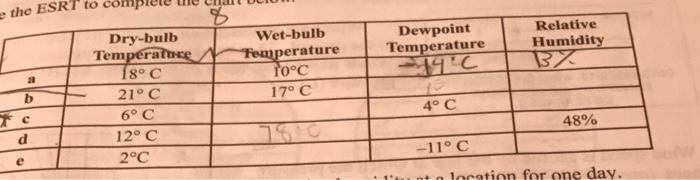 e the ESRT to complete the chart below.
8
Dry-bulb Temperature Wet-bulb Temperature Dewpoint Temperature Relative Humidity
a 18° C 10°C -14°C 13%
b 21° C 17° C
c 6° C 4° C
d 12° C 78°C 48%
e 2°C -11° C
location for one day.